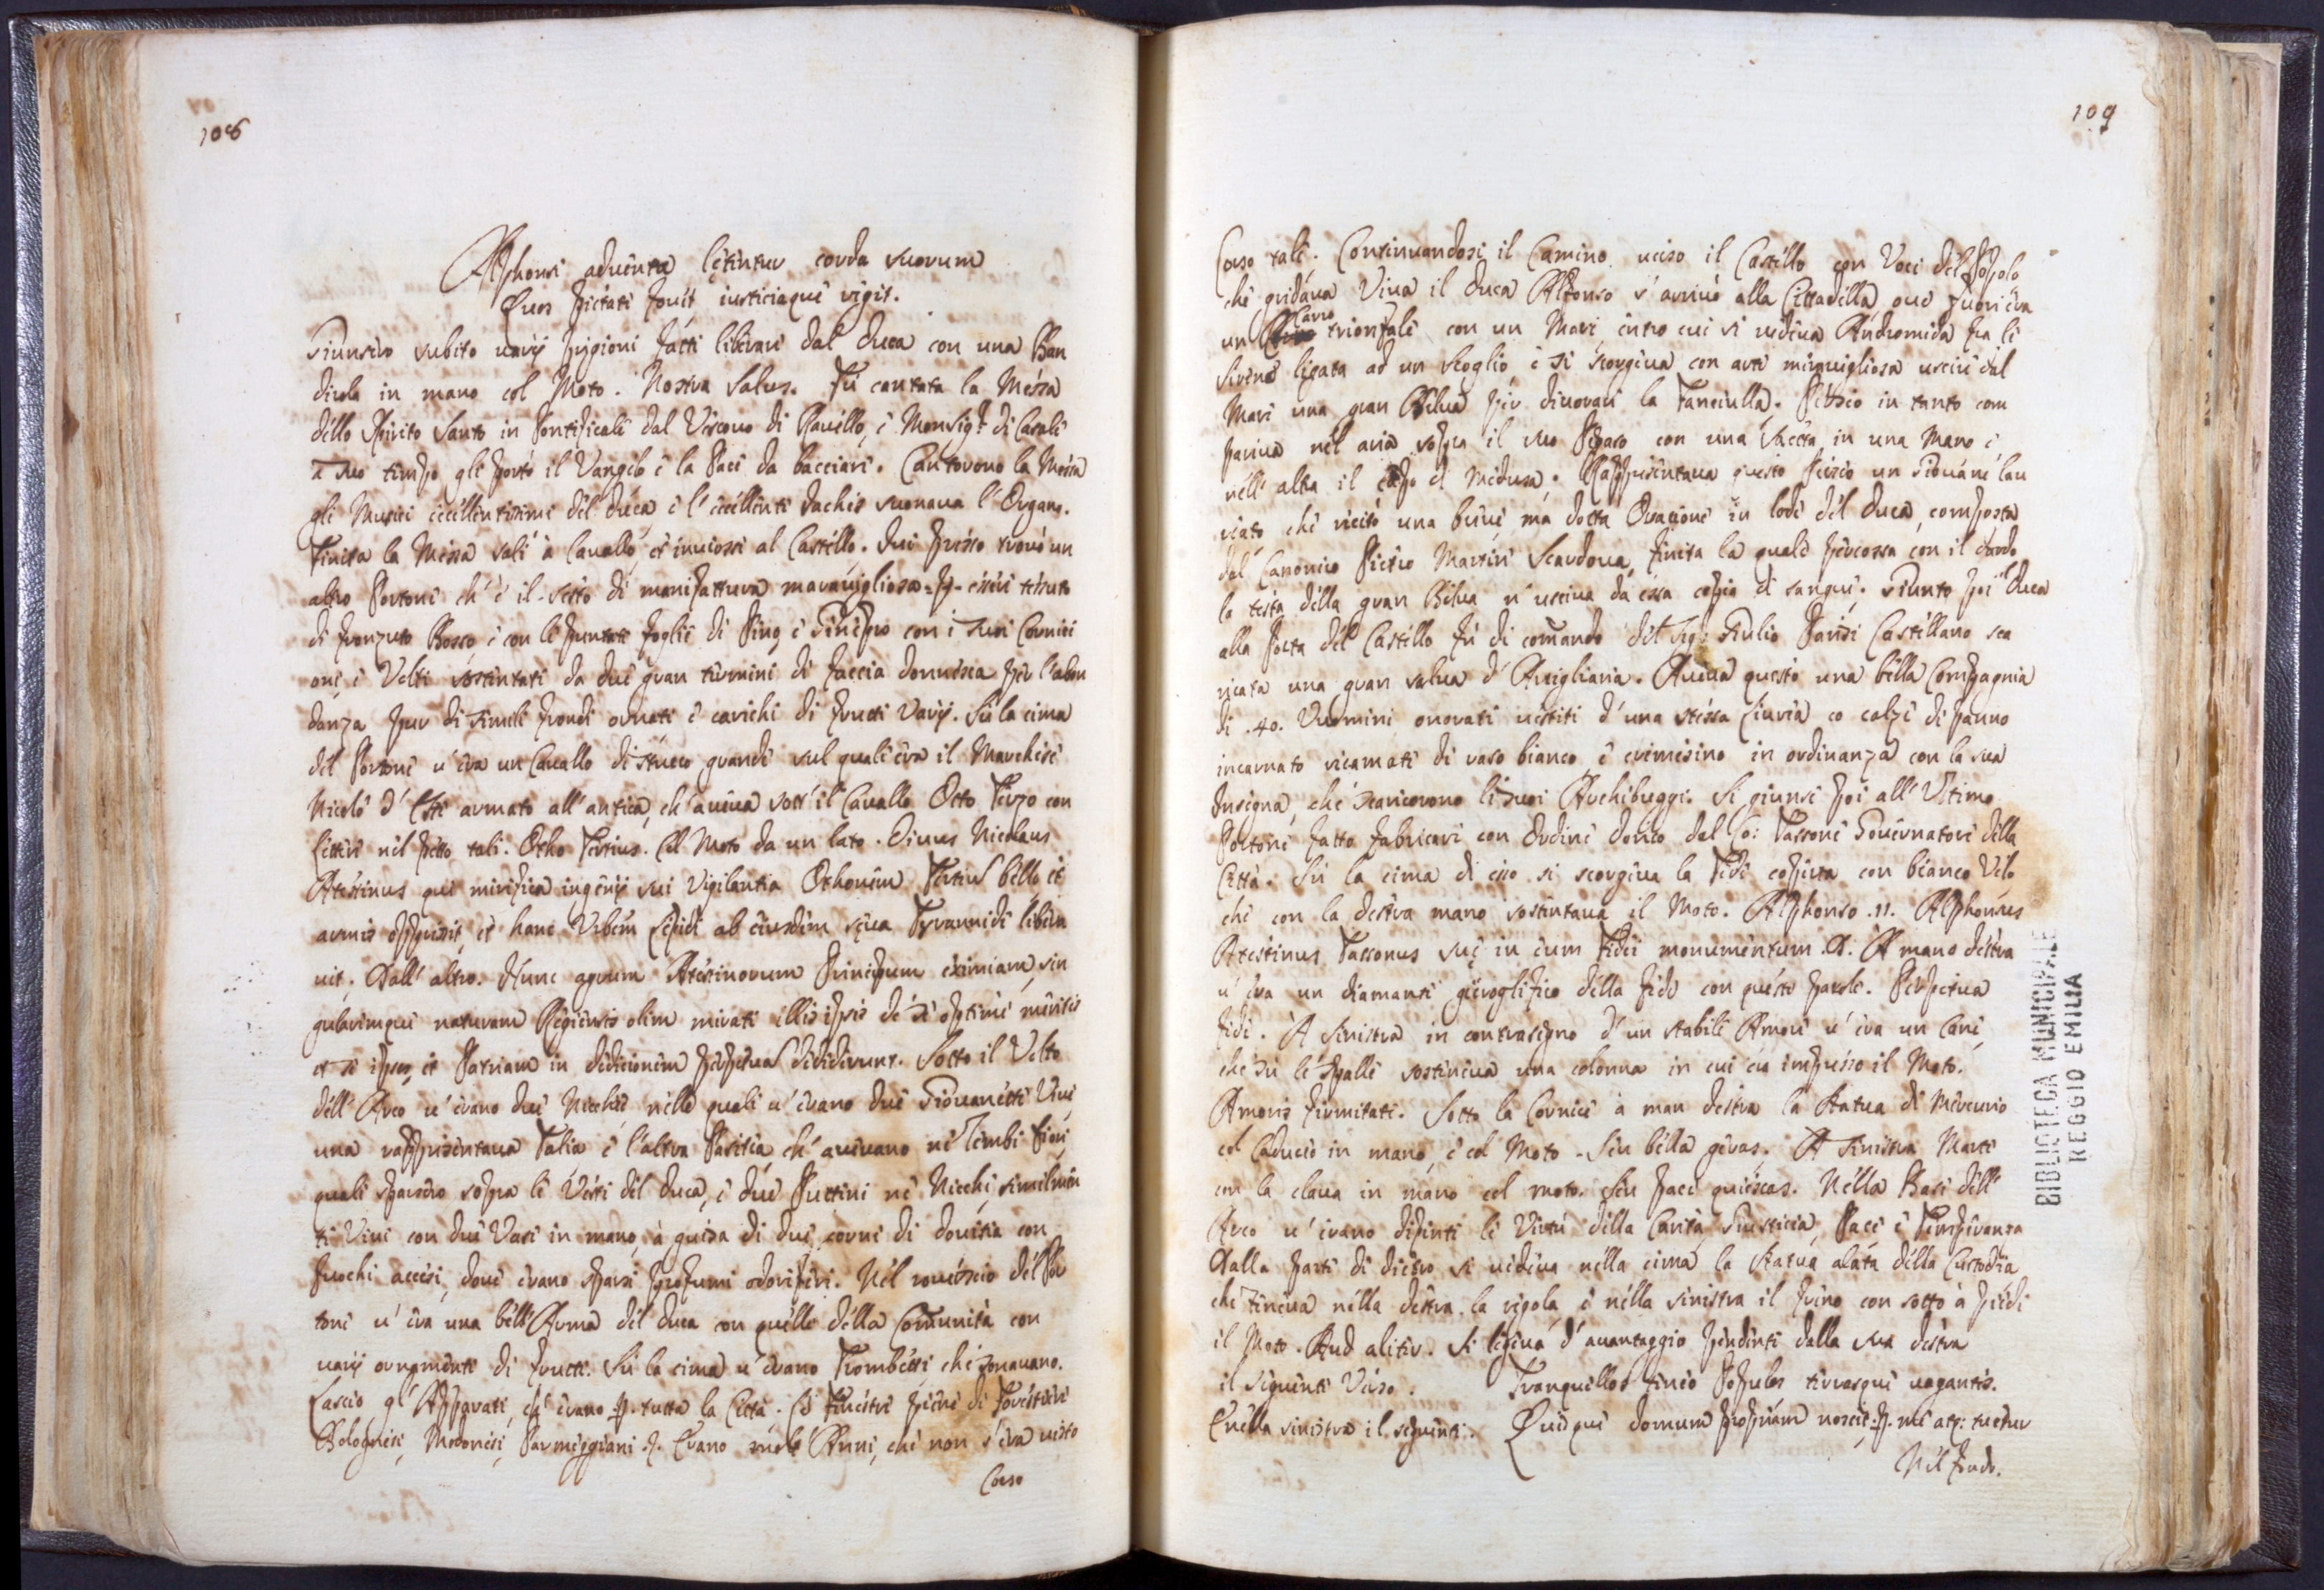 108
Alphonsi aduentu lętentur corda suorum
Quos pietate fouet iusticiaque regit.
Giunsero subito varij prigioni fatti liberare dal Duca con una Ban
diera in mano col Moto. Nostra Salus. Fù cantata la Messa
dello Spirito Santo in Pontificale dal Vescouo di Rauello, e Monsig.r di Casale
a suo tempo gli portò il Vangelo e la Pace da bacciare. Cantorono la Messa
gli Musici eccellentissimi del Duca, e l'eccellente Iaches suonaua l'Organo.
Finita la Messa salì à Cauallo, et inuiossi al Castello. Iui presso trouò un
altro Portone ch'è il sesto di manifattura marauigliosa p. essere tessuto
di fronzuto Bosso e con le puntate foglie di Pino, e Ginepro con i suoi Cornici
oni, e Volti sostentati da due gran termini di faccia donnesca per l'abon
danza pur di simili frondi ornati e carichi di frutti varij. Sù la cima
del Portone u'era un Cauallo di stucco grande sul quale era il Marchese
Nicolò d'Este armato all'antica, ch'aueua sott'il Cauallo Otto Terzo con
lettere nel petto tali. Otho Tertius. Col Moto da un lato. Diuus Nicolaus
Atestinus qui mirifica ingenij sui Vigilantia Othonem Tertiu bello et
armis oppressit, et hanc Urbem Lepidi ab eiusdem sęua Tyrannide libera
uit. Dall'altro. Hunc aprum Atestinorum Principum eximiam, sin
gularemque naturam Regienses olim mirati illis ipsis de se optime meritis
et se ipsos, et Patriam in dedicionem perpetua dediderunt. Sotto il Volto
dell'Arco u'erano due Nicchie nelle quali u'erano due Giouanette Viue
una rappresentaua Talia e l'altra Pasitea, ch'aueuano ne' Lembi fiori
quali sparsero sopra le Vesti del Duca, e due Puttini ne' Nicchi, similmen
te Viui con due Vasi in mano, à guisa di due corni di douitia con
fuochi accesi, doue erano sparsi profumi odoriferi. Nel rouescio del Por
tone u'era una bell'Arma del Duca con quelle della Comunità con
varij ornamenti di frutti. Sù la cima u'erano Trombetti che sonauano.
Lascio gl'Apparati, ch'erano p. tutta la Città. Le Finestre piene di Forestieri
Bolognesi, Modonesi, Parmeggiani &. Erano molti Anni, che non s'era uisto
Corso
109
Corso tale. Continuandosi il Camino uerso il Castello con Voci del Popolo
che gridaua Viua il Duca Alfonso s'arriuò alla Cittadella, oue fuori era
un Carro trionfale con un Mare, entro cui si uedeua Andromeda fra le
Sirene ligata ad un scoglio, e si scorgeua con arte merauigliosa uscire dal
Mare una gran Belua per diuorare la Fanciulla. Perseo in tanto com
pariua nel aria sopra il suo Pegaso con una Saetta in una Mano e
nell'altra il capo di Medusa. Rappresentaua questo Perseo un Giouane lau
reato che recitò una breue ma dotta Orazione in lode del Duca, composta
dal Canonico Pietro Martire Scardoua, finita la quale percossa con il dardo
la testa della gran Belua n'usciua da essa copia di sangue. Giunto poi il Duca
alla Porta del Castello fù di comando del Sig: Giulio Parisi Castellano sca
ricata una gran salua d'Artigliaria. Aueua questo una bella Compagnia
di .40. Uuomini onorati uestiti d'una stessa liurea co calze di panno
incarnato ricamate di raso bianco, e cremesino in ordinanza con la sua
Insegna, che scaricorono li suoi Archibuggi. Si giunse poi all'Ultimo
Portone fatto fabricare con Ordine Dorico dal Co: Tassone Gouernatore della
Città. Sù la cima di esso si scorgeua la Fede coperta con bianco Velo
che con la destra mano sostentaua il Moto. Alphonso .II. Alphonsus
Atestinus Tassonus suę in eum Fidei monumentum .D. A mano destra
u'era un diamante gieroglifico della fede con queste parole. Perpetua
fides. A sinistra in contrasegno d'un stabile Amore u'era un Cane,
che sù le spalle sosteneua una colonna in cui era impresso il Moto.
Amoris firmitati. Sotto la Cornice à man destra la statua di Mercurio
col Caduceo in mano, e col Moto. Seu bella geras. A Sinistra Marte
con la claua in mano col moto. Seu pace quiescas. Nella Base dell'
Arco u'erano depinte le Virtù della Carità, Giusticia, Pace, e Temperanza
Dalla parte di dietro si uedeua nella cima la Statua alata della Custodia
che teneua nella destra la regola, e nella sinistra il freno con sotto à piedi
il Moto. Aud aliter. Si legeua d'auantaggio pendente dalla sua destra
il seguente Verso. Tranquillos teneo Populos terrasque uagantes.
E nella sinistra il seguente. Quisque domum propriam noscit p. me atq: tuetur
Nel fondo.
BIBLIOTECA MUNICIPALE
REGGIO EMILIA